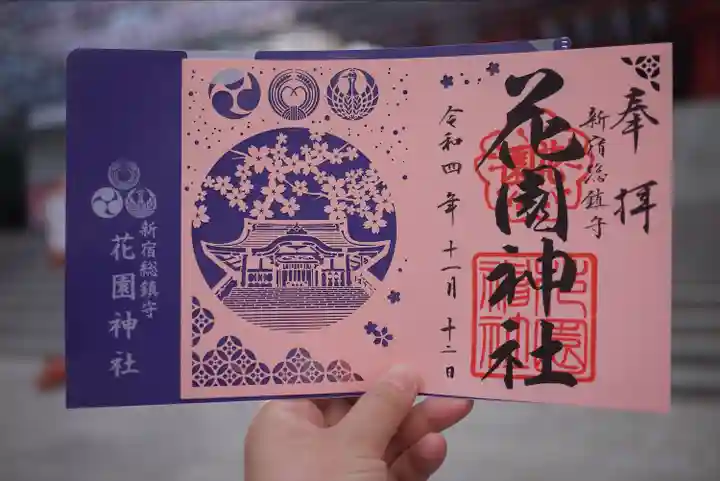 奉拝
新宿総鎮守
花園神社
令和四年十一月十二日
新宿総鎮守
花園神社